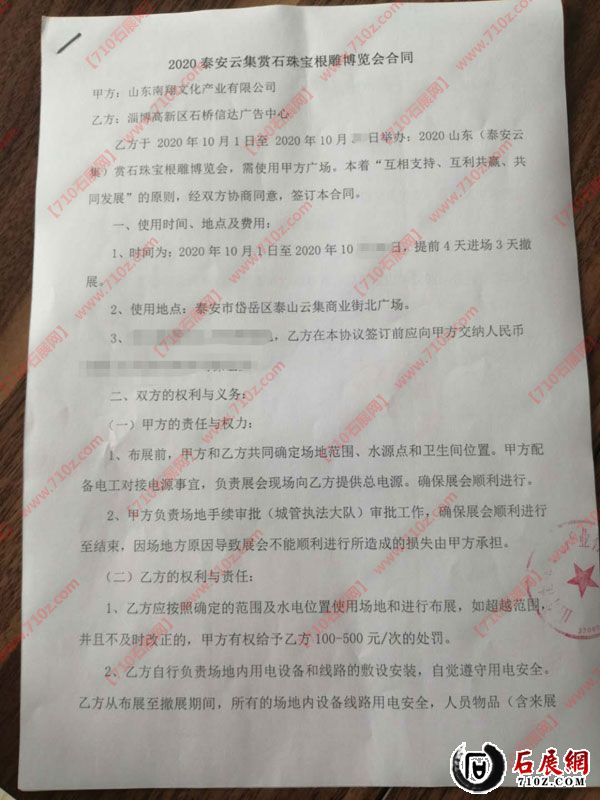 2020 泰安云集赏石珠宝根雕博览会合同
甲方：山东南翔文化产业有限公司
乙方：淄博高新区石桥信达广告中心
乙方于 2020 年 10 月 1 日至 2020 年 10 月 日举办：2020 山东（泰安云
集）赏石珠宝根雕博览会，需使用甲方广场。本着“互相支持、互利共赢、共
同发展”的原则，经双方协商同意，签订本合同。
一、使用时间、地点及费用：
1、时间为：2020 年 10 月 1 日至 2020 年 10 日，提前 4 天进场 3 天撤
展。
2、使用地点：泰安市岱岳区泰山云集商业街北广场。
3、 ，乙方在本协议签订前应向甲方交纳人民币
二、双方的权利与义务：
（一）甲方的责任与权力：
1、布展前，甲方和乙方共同确定场地范围、水源点和卫生间位置。甲方配
备电工对接电源事宜，负责展会现场向乙方提供总电源。确保展会顺利进行。
2、甲方负责场地手续审批（城管执法大队）审批工作，确保展会顺利进行
至结束，因场地方原因导致展会不能顺利进行所造成的损失由甲方承担。
（二）乙方的权利与责任：
1、乙方应按照确定的范围及水电位置使用场地和进行布展，如超越范围，
并且不及时改正的，甲方有权给予乙方 100-500 元/次的处罚。
2、乙方自行负责场地内用电设备和线路的敷设安装，自觉遵守用电安全。
乙方从布展至撤展期间，所有的场地内设备线路用电安全，人员物品（含来展
【710石展网】www.710z.com
石展網
www.710z.com